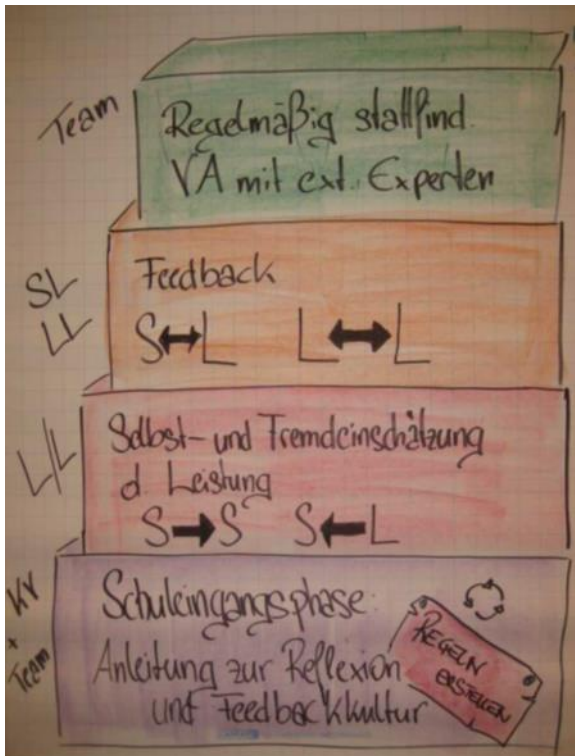 Team
Regelmäßig stattfind.
VA mit ext. Experten
SL
LL
Feedback
S↔L L↔L
L/L
Selbst- und Fremdeinschätzung
d. Leistung
S→S S←L
KV
+
Team
Schuleingangsphase:
Anleitung zur Reflexion
und Feedbackkultur
REGELN
ERSTELLEN